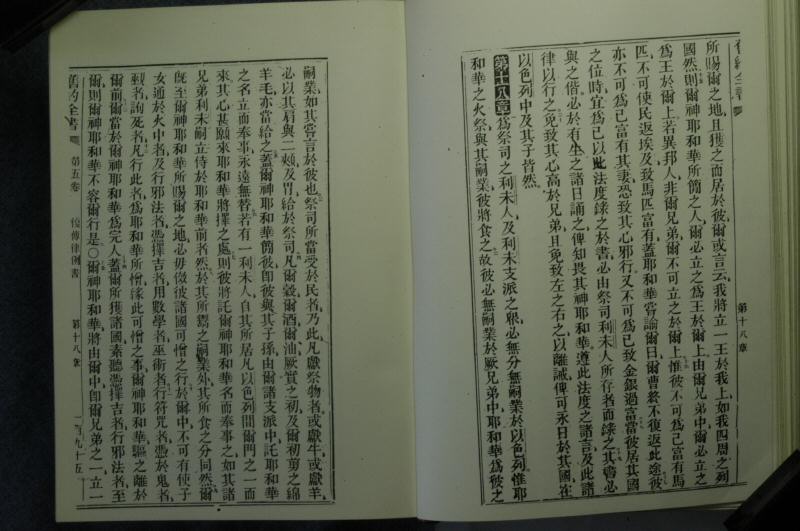 舊約全書
第十八章
所賜爾之地且獲之而居於彼爾或言云我將立一王於我上如我四周之列
國然則爾神耶和華所簡之人爾必立之爲王於爾上由爾兄弟中爾必立之
爲王於爾上若異邦人非爾兄弟爾不可立之於爾上惟彼不可爲己富有馬
匹不可使民返埃及致馬匹富有蓋耶和華嘗諭爾曰爾曹終不復返此途彼
亦不可爲己富有其妻恐致其心邪行又不可爲己致金銀過富當彼居其國
之位時宜爲己以此法度錄之於書必由祭司利未人所存者而錄之其書必
與之偕必於有生之諸日誦之俾知畏其神耶和華遵此法度之諸言及此諸
律以行之免致其心高於兄弟且免致左之右之以離誡俾可永日於其國在
以色列中及其子皆然
第十八章爲祭司之利未人及利未支派之眾必無分無嗣業於以色列惟耶
和華之火祭與其嗣業彼將食之故彼必無嗣業於厥兄弟中耶和華爲彼之
嗣業如其嘗言於彼也祭司所當受於民者乃此凡獻祭物者或獻牛或獻羊
必以其肩與二頰及胃給於祭司凡爾穀爾酒爾油厥實之初及爾初剪之綿
羊毛亦當給之蓋爾神耶和華簡彼卽彼與其子孫由爾諸支派中託耶和華
之名立而奉事永遠無替若有一利未人自其所居凡以色列間爾門之一而
來其心甚願來耶和華將擇之處則彼將託爾神耶和華名而奉事之如其諸
兄弟利未嗣立侍於耶和華前者然於其所鬻之嗣業外其所食之分同然爾
旣至爾神耶和華所賜爾之地必毋倣彼諸國可憎之行於爾中不可有使子
女通於火中者及行邪法者憑擇吉者用數學者巫術者行符咒者憑於鬼者
卦者詢死者凡行此者爲耶和華所憎緣此可憎之事爾神耶和華驅之離於
爾前爾當於爾神耶和華爲完人蓋爾所獲諸國素聽憑擇吉者行邪法者至
爾則爾神耶和華不容爾行是〇爾神耶和華將由爾中卽爾兄弟之一立一
舊約全書 第五卷 復傳律例書 第十八章 一百九十五